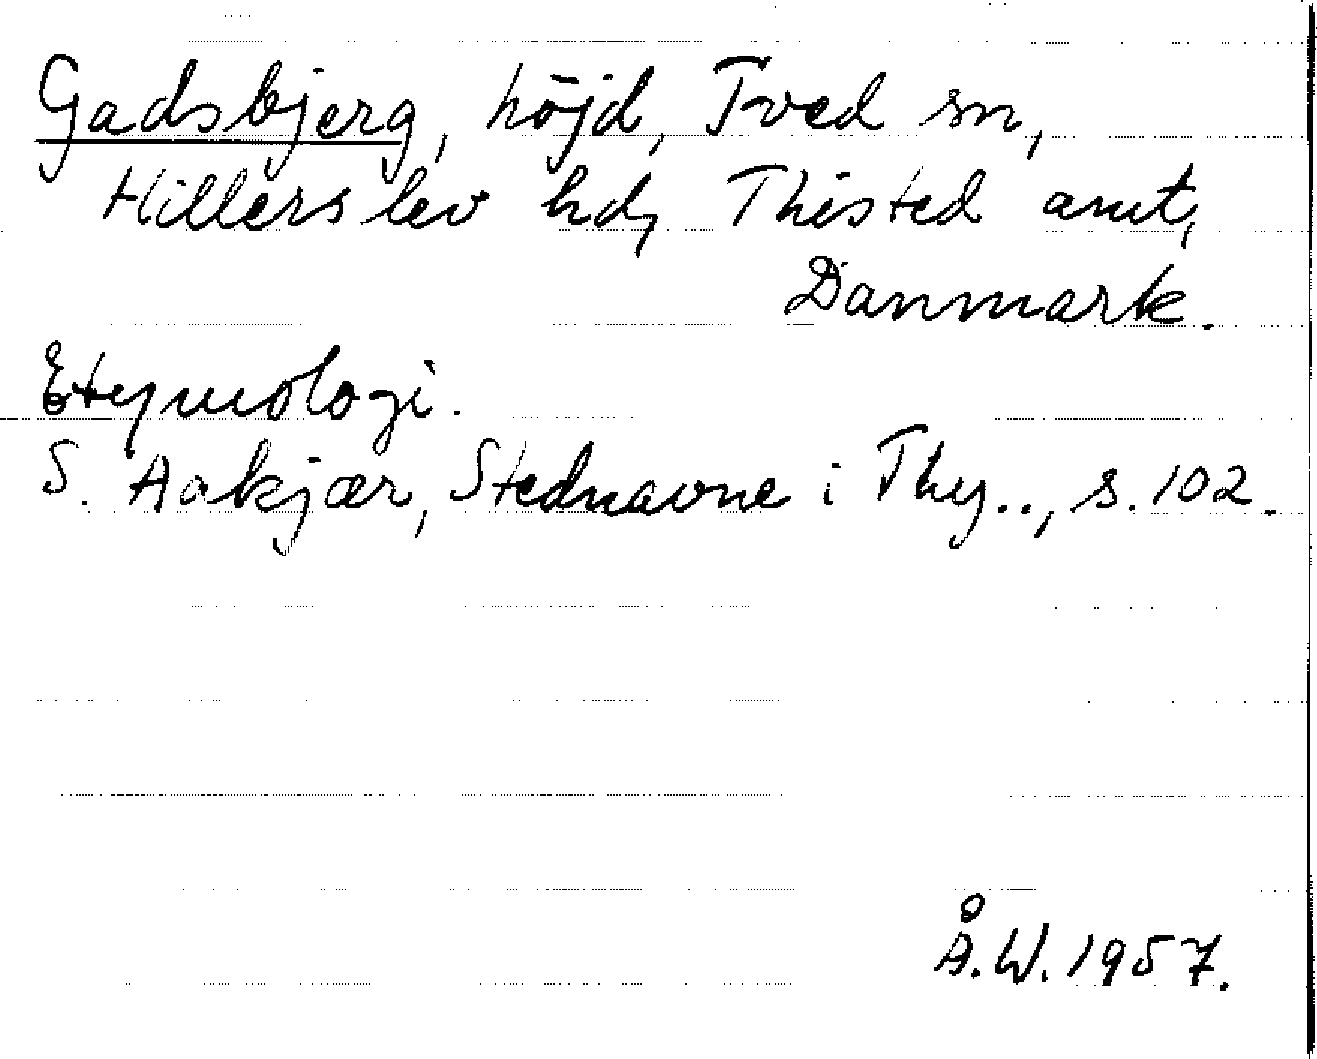 Gadsbjerg, höjd, Tved sn,
Hillerslev hd, Thisted amt,
Danmark.
Etymologi.
S. Aakjær, Stednavne i Thy.., s. 102.
Å.W. 1957.